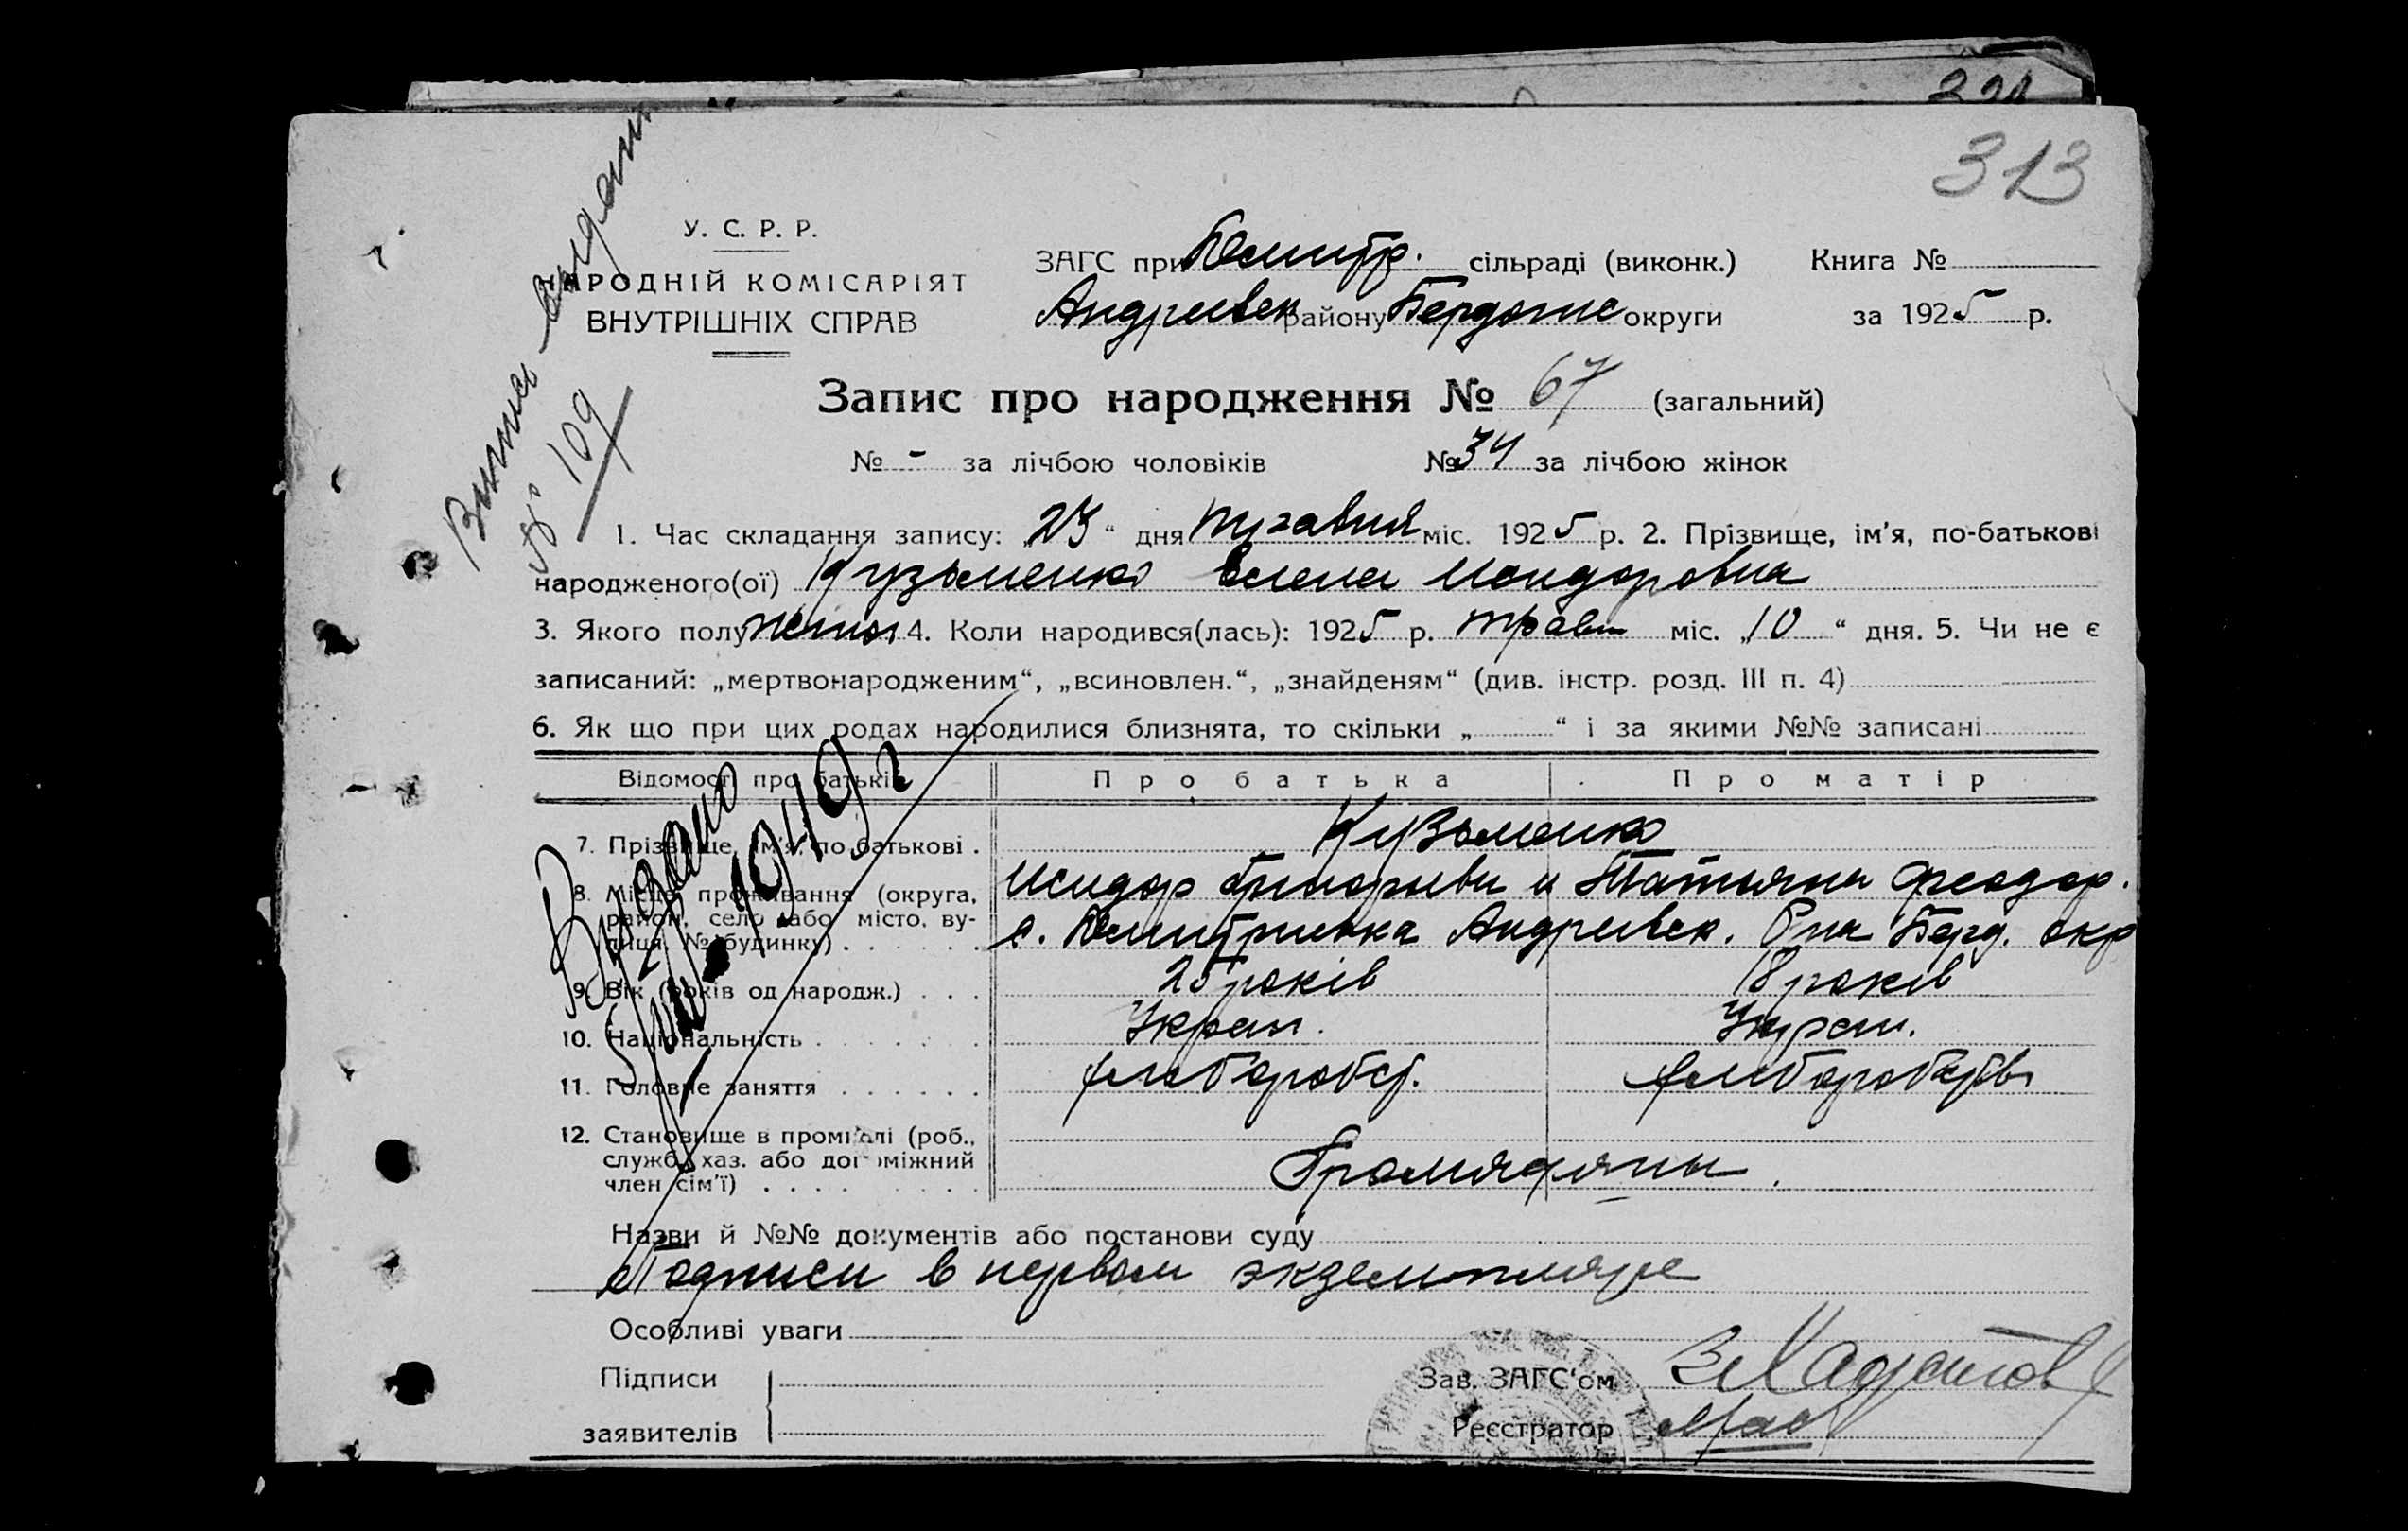 321
313
Выпись выдана
№ 109
У. С. Р. Р.
НАРОДНІЙ КОМІСАРІЯТ
ВНУТРІШНІХ СПРАВ
ЗАГС при Дмитр. сільраді (виконк.) Книга №
Андреевск району Бердянс округи за 1925 р.
Запис про народження № 67 (загальний)
№ - за лічбою чоловіків № 34 за лічбою жінок
1. Час складання запису: „23“ дня травня міс. 1925 р. 2. Прізвище, ім'я, по-батькові
народженого(ої) Кузьменко Елена Исидоровна
3. Якого полу женск 4. Коли народився(лась): 1925 р. травн міс. „10“ дня. 5. Чи не є
записаний: „мертвонародженим“, „всиновлен.“, „знайденям“ (див. інстр. розд. III п. 4)
6. Як що при цих родах народилися близнята, то скільки „ “ і за якими №№ записані
Відомості про батьків Про батька Про матір
7. Прізвище, ім'я, по батькові . Кузьменко
8. Місце проживання (округа, Исидор Григорьеви и Татьяна Феодор.
район, село або місто, ву-
лиця, № будинку) . . . . . . с. Дмитриевка Андреевск. Р-на Берд. окр
9. Вік (років од народж.) . . . 25 років 18 років
10. Національність . . . . . . . Украин. Украин.
11. Головне заняття . . . . . . хлебороб хлебороб
12. Становище в промислі (роб.,
служб, хаз. або допоміжний
член сім'ї) . . . . Громадяны
Выдано
1949 г
Назви й №№ документів або постанови суду
Подписи в первом экземпляре
Особливі уваги
Підписи
заявителів
Зав. ЗАГС'ом
Реєстратор